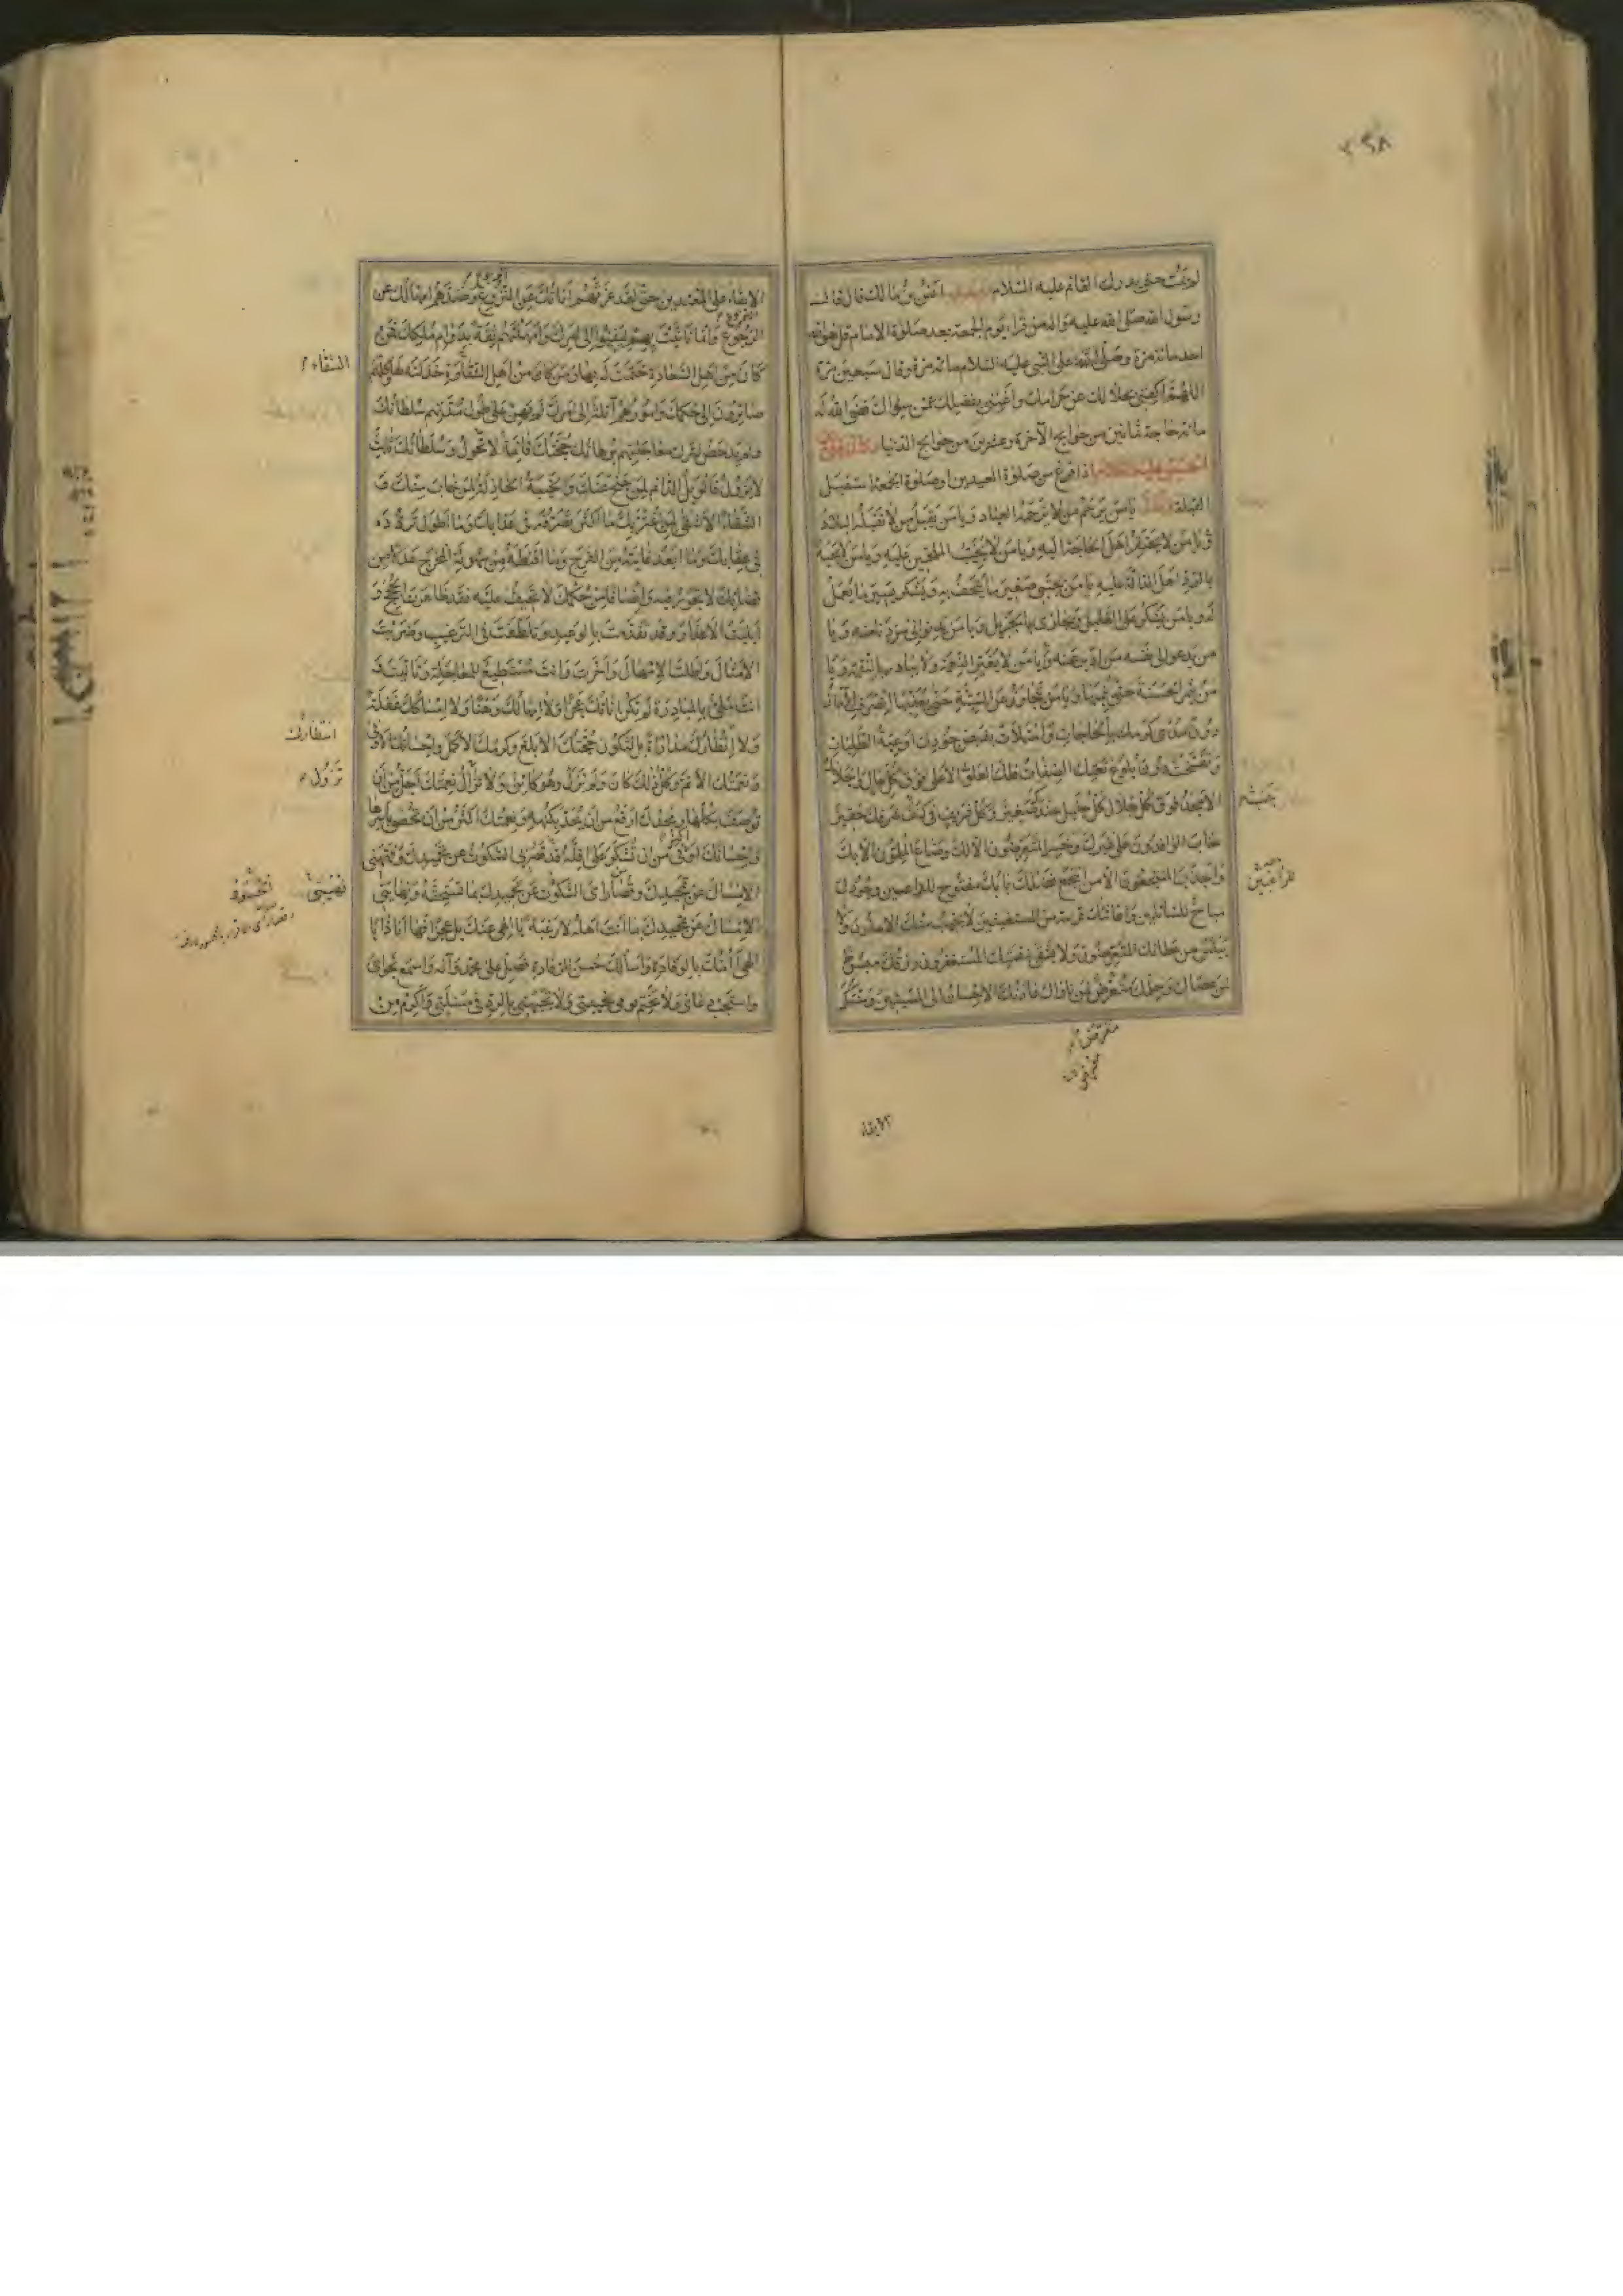 ٢٥٨
لم يمت حتى يدرك القائم عليه السلام انس بن مالك قال قال
رسول الله صلى الله عليه واله من قراء يوم الجمعة بعد صلوة الامام قل هو الله
احد مائة مرة وصلى على النبي عليه السلام مائة مرة وقال سبعين مرة
اللهم اكفني بحلالك عن حرامك واغنني بفضلك عمن سواك قضى الله له
مائة حاجة ثمانين من حوايج الآخرة وعشرين من حوايج الدنيا وكان
الحسين عليهما السلام اذا فرغ من صلوة العيدين او صلوة الجمعة استقبل
القبلة وقال يا من يرحم من لا يرحمه العباد ويا من يقبل من لا تقبله البلاد
ويا من لا يحتقر اهل الحاجة اليه ويا من لا يخيب الملحين عليه ويا من لا يجبه
بالرد اهل الدالة عليه يا من يجتبي صغير ما يتحف به ويشكر يسير ما يعمل
له ويا من يشكر على القليل ويجازى بالجزيل ويا من يدنو الى من دنا منه ويا
من يدعو الى نفسه من ادبر عنه ويا من لا يغير النعمة ولا يبادر بالنقمة ويا
من يثمر الحسنة حتى ينميها ويا من يتجاوز عن السيئة حتى يعفيها انصرفت الآمال
دون مدى كرمك بالحاجات وامتلأت بفيض جودك اوعية الطلبات
وتفسخت دون بلوغ نعتك الصفات فلك العلو الاعلى فوق كل عال والجلال
الامجد فوق كل جلال كل جليل عندك صغير وكل شريف في جنب شرفك حقير
خاب الوافدون على غيرك وخسر المتعرضون الا لك وضاع الملمون الا بك
واجدب المنتجعون الا من انتجع فضلك بابك مفتوح للراغبين وجودك
مباح للسائلين واغاثتك قريبة من المستغيثين لا يخيب منك الآملون ولا
ييئس من عطائك المتعرضون ولا يشقى بنقمتك المستغفرون رزقك مبسوط
لمن عصاك وحلمك متعرض لمن ناواك عادتك الاحسان الى المسيئين وسنتك
للراغبين
الابقاء
الابقاء على المعتدين حتى لقد غرتهم اناتك عن النزوع وصدهم امهالك عن
الرجوع وانما تانيت بهم ليفيئوا الى امرك وامهلتهم ثقة بدوام ملكك فمن
كان من اهل السعادة ختمت له بها ومن كان من اهل الشقاوة خذلته لها كلهم
صائرون الى حكمك وامورهم آئلة الى امرك لم يهن على طول مدتهم سلطانك
ولم يدحض لترك معاجلتهم برهانك حجتك قائمة لا تحول وسلطانك ثابت
لا يزول فالويل الدائم لمن جنح عنك والخيبة الخاذلة لمن خاب منك و
الشقاء الاشقى لمن اغتر بك ما اكثر تصرفه في عذابك وما اطول تردده
في عقابك وما ابعد غايته من الفرج وما اقنطه من سهولة المخرج عدلا من
قضائك لا تجور فيه وانصافا من حكمك لا تحيف عليه فقد ظاهرت الحجج و
ابليت الاعذار وقد تقدمت بالوعيد وتلطفت في الترغيب وضربت
الامثال واطلت الامهال واخرت وانت مستطيع للمعاجلة وتانيت و
انت ملئ بالمبادرة لم تكن اناتك عجزا ولا امهالك وهنا ولا امساكك غفلة
ولا انتظارك مداراة بل لتكون حجتك الابلغ وكرمك الاكمل واحسانك الاوفى
ونعمتك الاتم وكل ذلك كان ولم تزل وهو كائن ولا تزال نعمتك اجل من ان
توصف بكلها ومجدك ارفع من ان يحد بكنهه ونعمتك اكثر من ان تحصى باسرها
واحسانك اكثر من ان تشكر على اقله فقد قصر بي السكوت عن تحميدك وفههني
الامساك عن تمجيدك وقصاراى السكوت عن تحميدك بما تستحقه ونهايتي
الامساك عن تمجيدك بما انت اهله لا رغبة يا الهي عنك بل عجزا فها انا ذا يا
الهي اؤمك بالوفادة واسالك حسن الرفادة فصل على محمد وآله واسمع نجواى
واستجب دعائي ولا تختم يومي بخيبتي ولا تجبهني بالرد في مسئلتي واكرم من
الشقاء
انتظارك
تزول